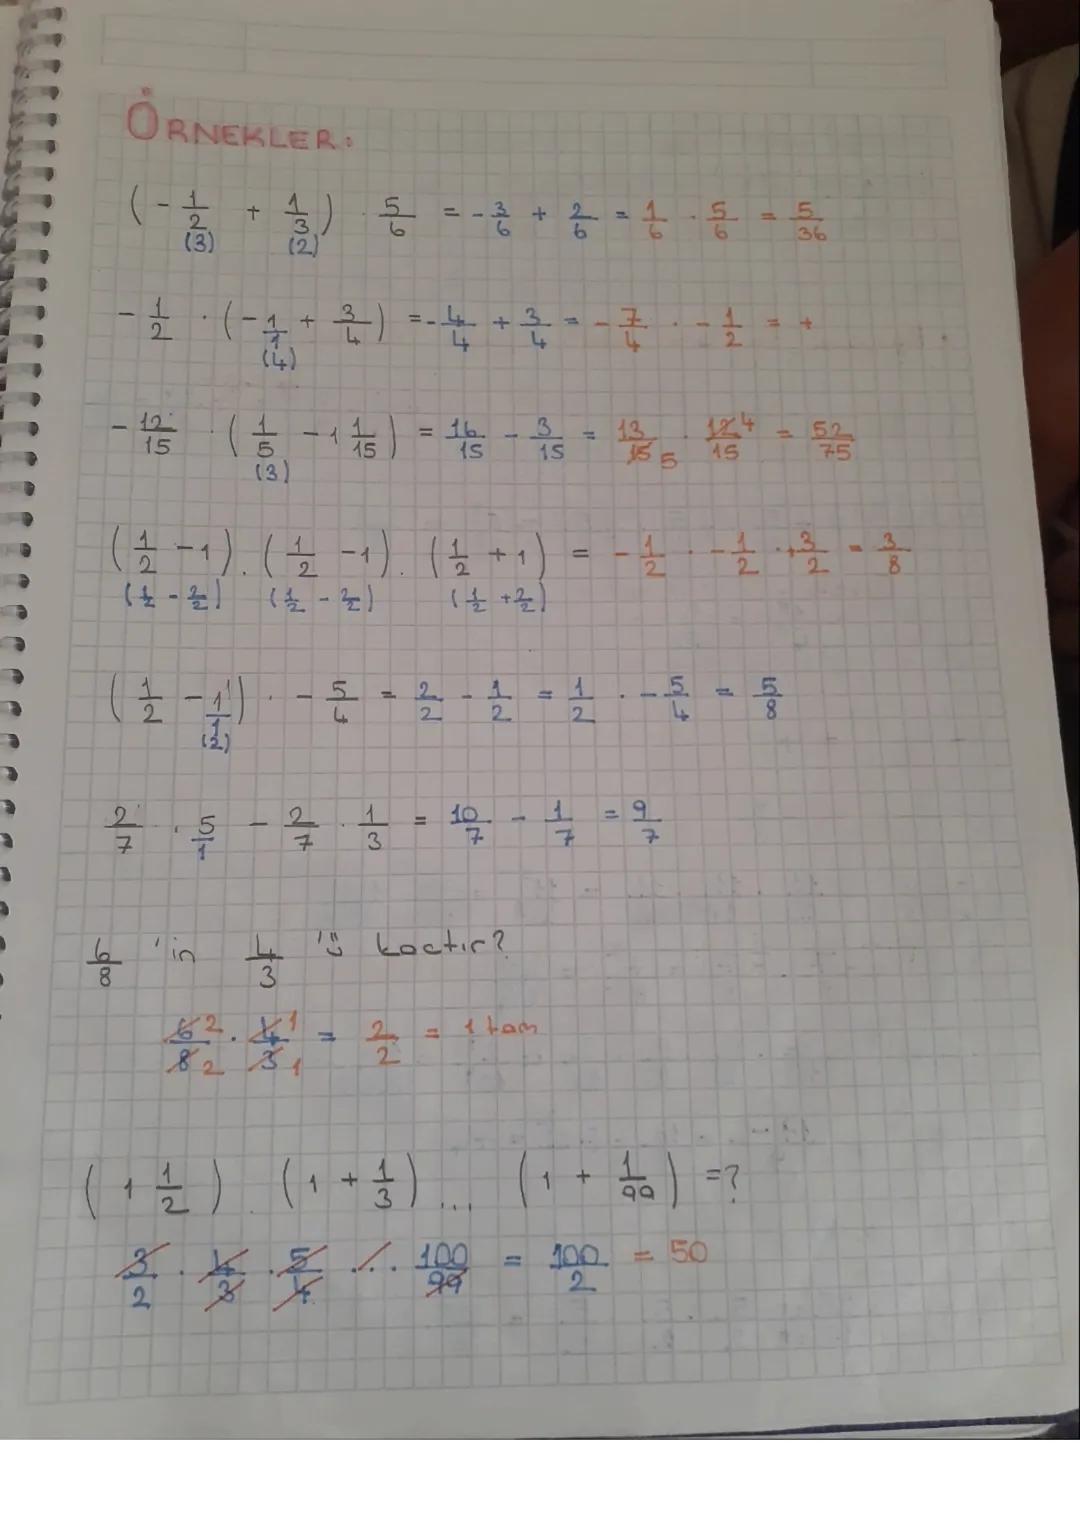 ÖRNEKLER:
(-1/2 (3) + 1/3 (2)) . 5/6 = -3/6 + 2/6 = 1/6 . 5/6 = 5/36
-1/2 . (-1/1 (4) + 3/4) = -4/4 + 3/4 = -7/4 . -1/2 = +
-12/15 . (1/5 (3) - 1 1/15) = 16/15 - 3/15 = 13/15 5 . 12 4/15 = 52/75
(1/2 - 1) . (1/2 - 1) . (1/2 + 1) = -1/2 . -1/2 . +3/2 = 3/8
(1/2 - 2/2) (1/2 - 2/2) (1/2 + 2/2)
(1/2 - 1/1 (2)) . -5/4 = 2/2 - 1/2 = 1/2 . -5/4 = 5/8
2/7 . 5/1 - 2/7 . 1/3 = 10/7 - 1/7 = 9/7
6/8 'in 4/3 'ü kaçtır?
6 2/8 2 . 4 1/3 1 = 2/2 = 1 tam
(1 1/2) . (1 + 1/3) ... (1 + 1/99) = ?
3/2 . 4/3 . 5/4 ... 100/99 = 100/2 = 50